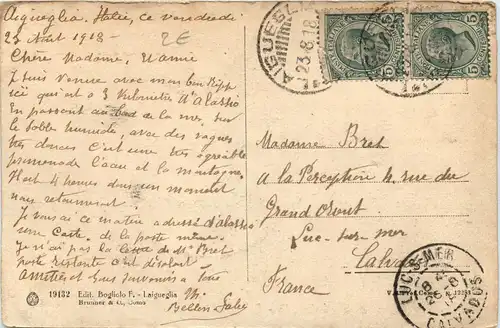 Aigueglia, Italie, ce vendredi
23 Août 1918 -
2€
Chère Madame,
Je suis venue avec mon
ici qui est à 3 kilomètres d'Alassio
En passant au bord de la mer, sur
le sable humide, avec des vagues
très douces c'est une très agréable
promenade l'eau et la montagne.
4 heures dans un moment
nous retournerons.
ce matin adressé d'Alassio
une carte de la poste même
Je n'ai pas la de Mr Bret
poste restante c'est désolant
Amitiés et bons souvenirs à Tous
19132 Edit. Bogliolo F. - Laigueglia
Brunner & C., Como
AIGUEGLIA
23.8.18
Madame Bret
A la Perception 4, rue du
Grand Orient
Luc-sur-mer
Calvados
France
LUC-S-MER
CALVADOS